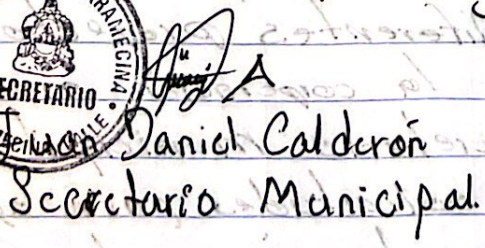 ARAMECINA
ECRETARIO
Daniel Calderón
Secretario Municipal.